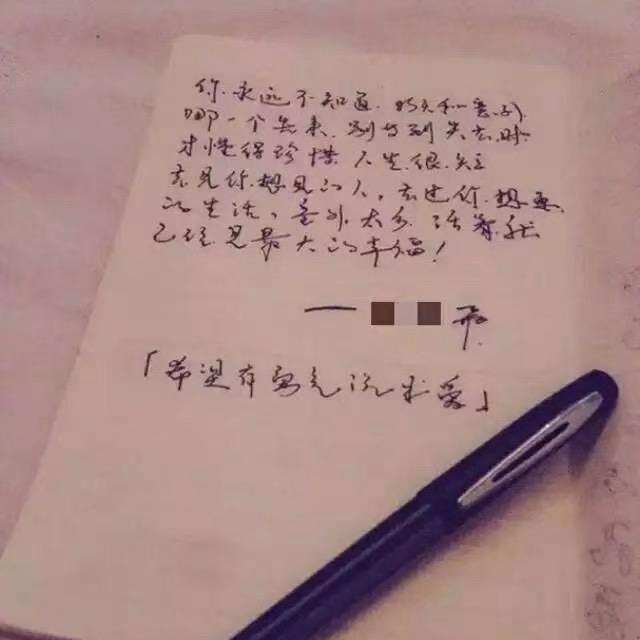 你永远不知道 明天和意外
哪一个先来，别等到失去时
才懂得珍惜 人生很短
去见你想见的人，去过你想要
的生活，意外太多 活着
已经是最大的幸福！
一
「希望有勇气说 爱」